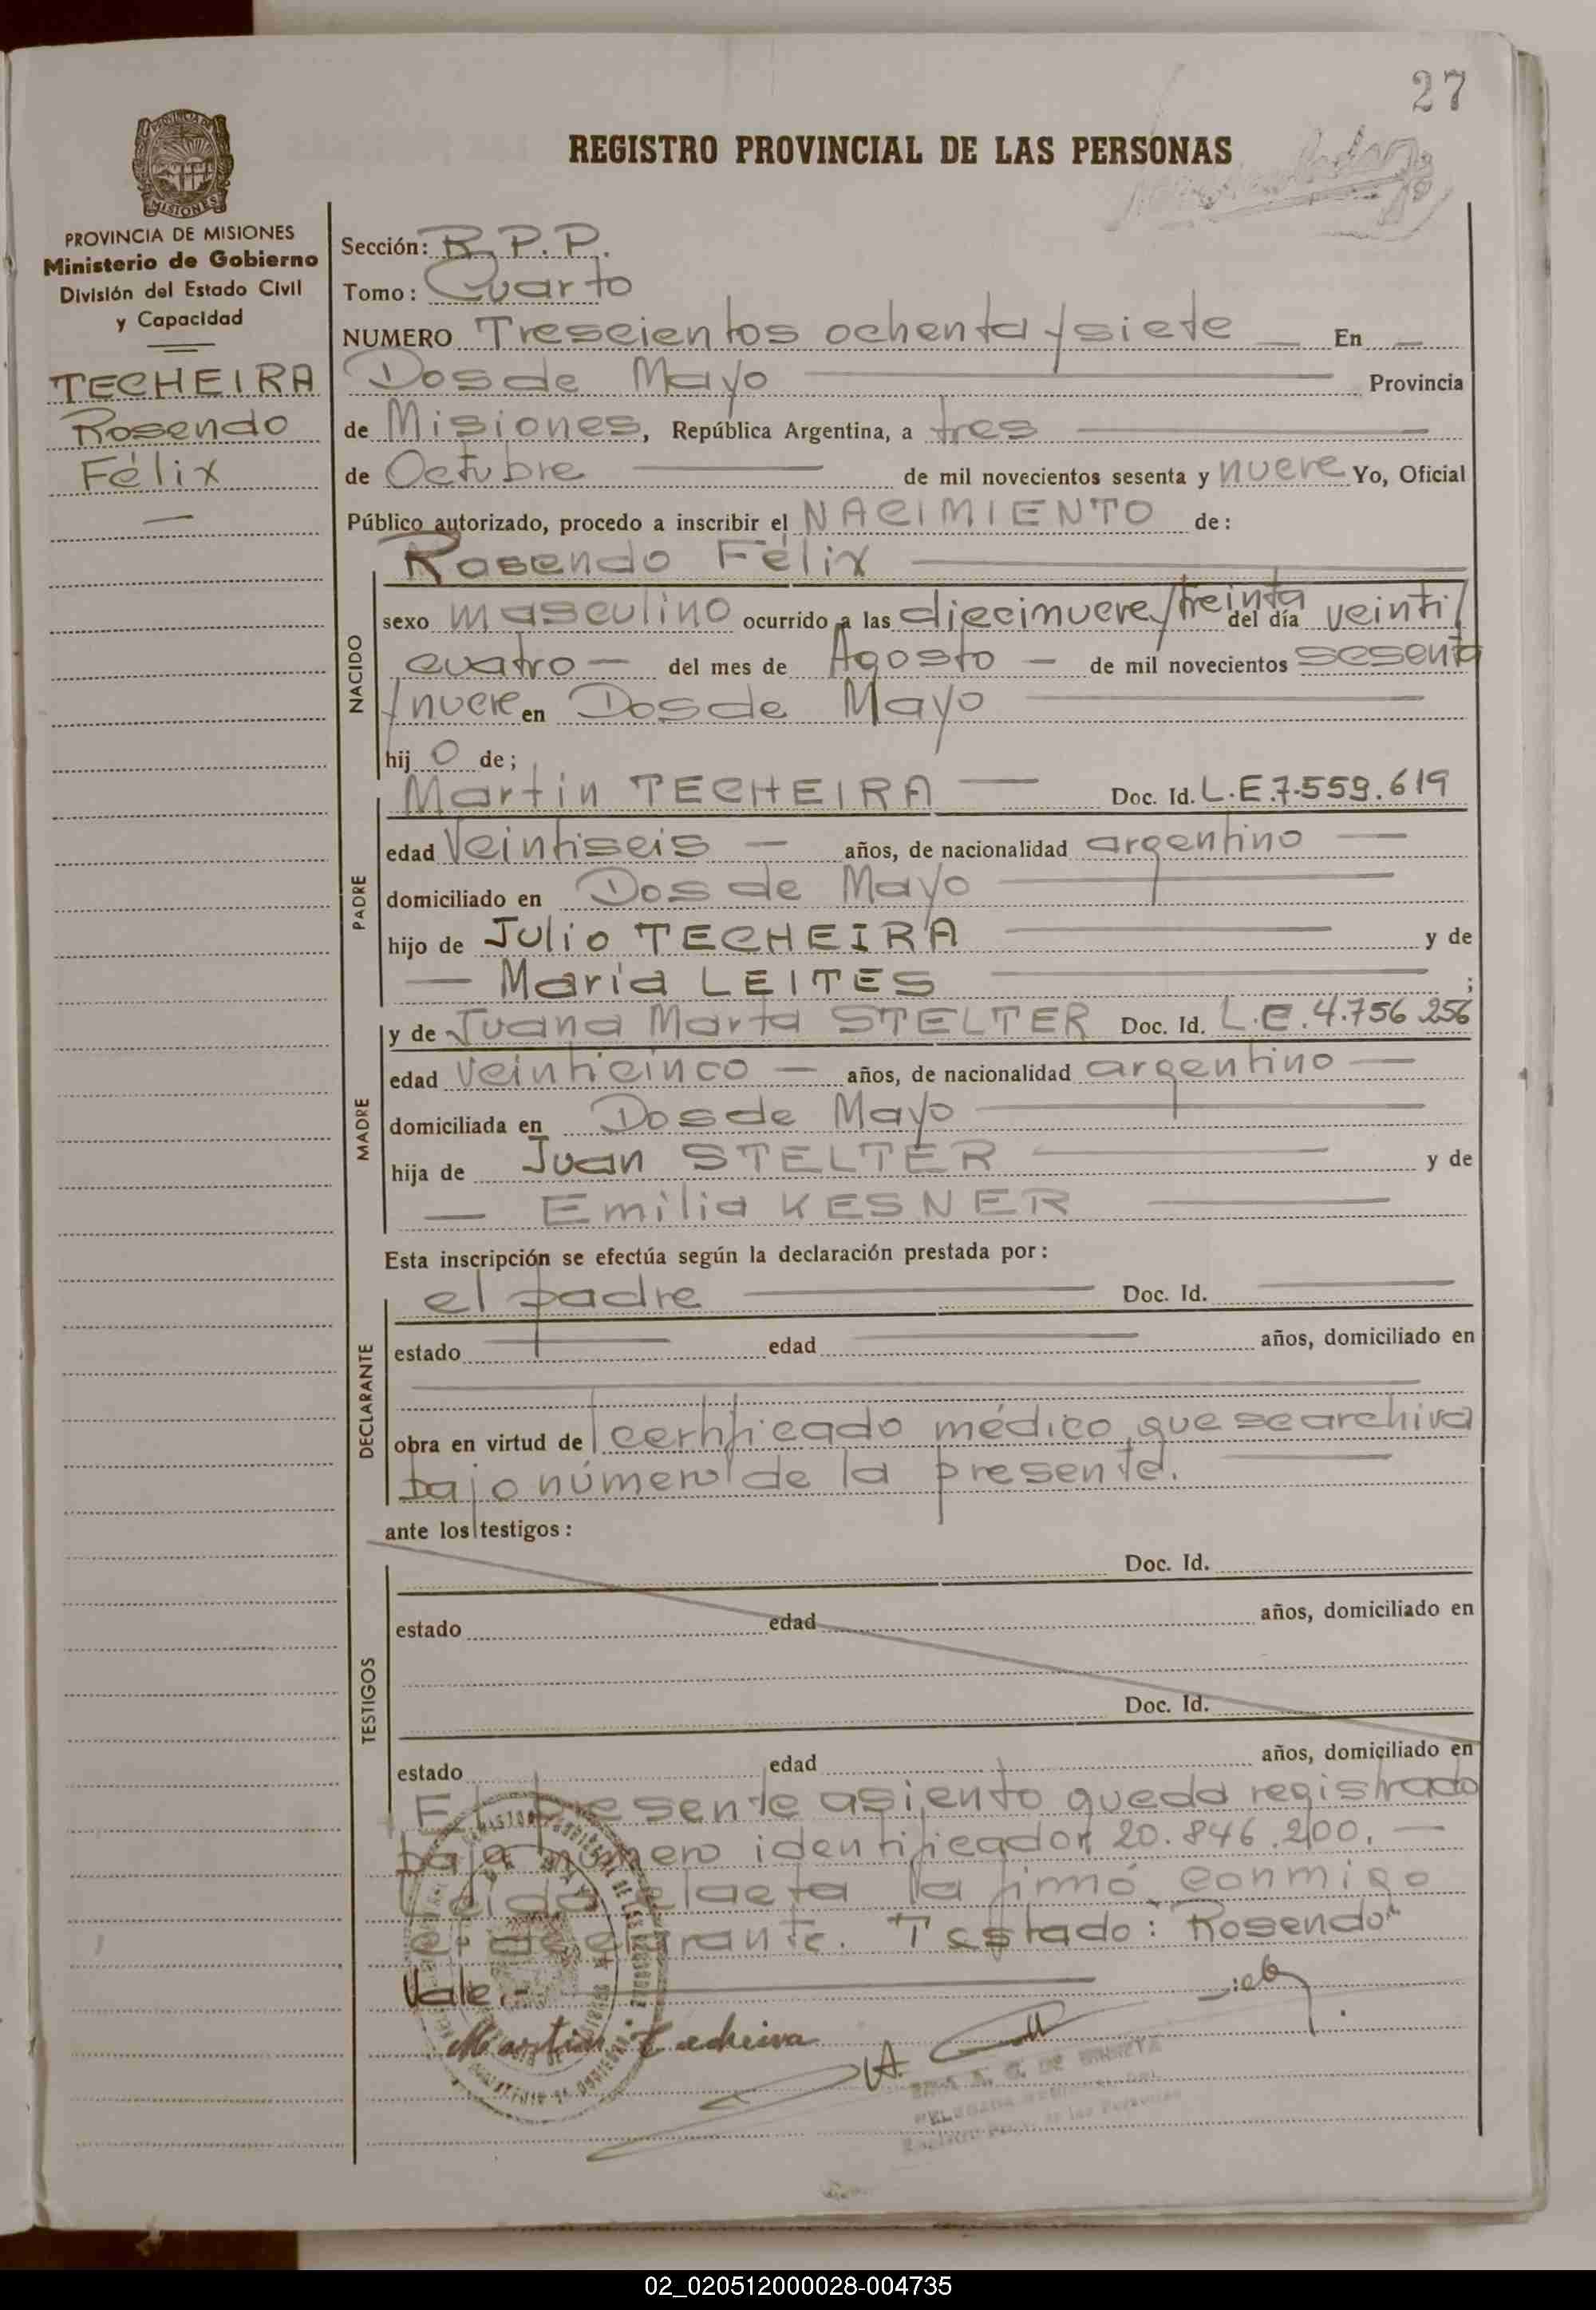 27
REGISTRO PROVINCIAL DE LAS PERSONAS
PROVINCIA DE MISIONES
Ministerio de Gobierno
División del Estado Civil
y Capacidad
TECHEIRA
Rosendo
Félix
Sección: R.P.P.
Tomo: Cuarto
NUMERO Trescientos ochenta y siete — En —
Dos de Mayo — Provincia
de Misiones, República Argentina, a tres —
de Octubre — de mil novecientos sesenta y nueve Yo, Oficial
Público autorizado, procedo a inscribir el NACIMIENTO de:
Rosendo Félix —
NACIDO
sexo masculino ocurrido a las diecinueve/treinta del día veinti/
cuatro — del mes de Agosto — de mil novecientos sesenta
/nueve en Dos de Mayo —
hij o de;
PADRE
Martin TECHEIRA — Doc. Id. L.E.7.559.619
edad Veintiseis — años, de nacionalidad argentino —
domiciliado en Dos de Mayo —
hijo de Julio TECHEIRA — y de
— Maria LEITES — ;
MADRE
y de Juana Marta STELTER Doc. Id. L.E.4.756.256
edad Veinticinco — años, de nacionalidad argentino —
domiciliada en Dos de Mayo —
hija de Juan STELTER — y de
— Emilia KESNER —
Esta inscripción se efectúa según la declaración prestada por:
DECLARANTE
el padre — Doc. Id. —
estado — edad — años, domiciliado en
obra en virtud de certificado médico, que se archiva
bajo número de la presente. —
ante los testigos:
TESTIGOS
Doc. Id.
estado edad años, domiciliado en
Doc. Id.
estado edad años, domiciliado en
El presente asiento queda registrado
bajo número identificador 20.846.200. —
Leida el acta la firmó conmigo
el declarante. Testado: "Rosendo"
Vale.-
Martin Techeira
02_020512000028-004735